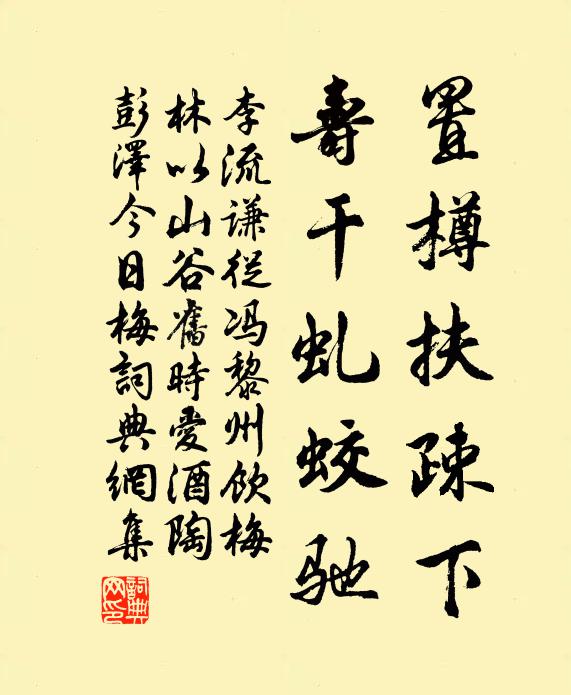 置樽扶疎下
壽干虬蛟馳
李流謙從馮黎州飲梅
林以山谷舊時愛酒陶
彭澤今日梅詞典網集
詞典
网印